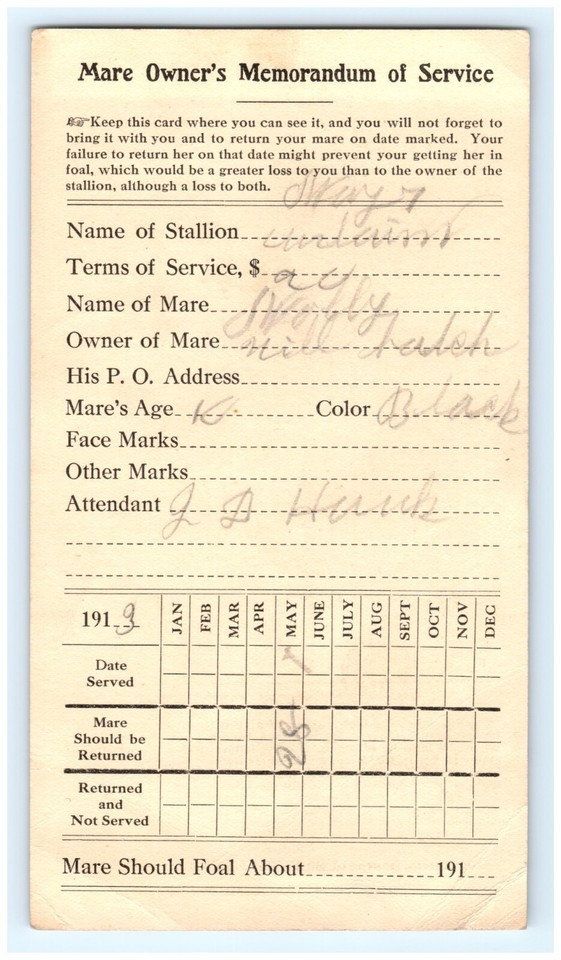 Mare Owner's Memorandum of Service
☞Keep this card where you can see it, and you will not forget to
bring it with you and to return your mare on date marked. Your
failure to return her on that date might prevent your getting her in
foal, which would be a greater loss to you than to the owner of the
stallion, although a loss to both.
Name of Stallion
Terms of Service, $
Name of Mare
Owner of Mare
His P. O. Address
Mare's Age Color Black
Face Marks
Other Marks
Attendant J D
1913 JAN FEB MAR APR MAY JUNE JULY AUG SEPT OCT NOV DEC
Date
Served
Mare
Should be
Returned
28
Returned
and
Not Served
Mare Should Foal About 191